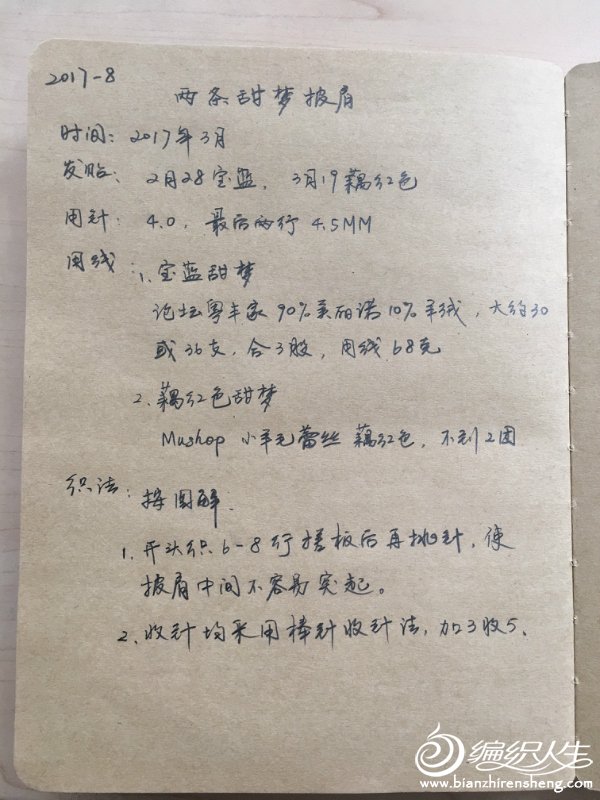 2017-8
两条甜梦披肩
时间: 2017年3月
发贴: 2月28宝蓝, 3月19藕红色
用针: 4.0, 最后两行 4.5MM
用线: 1. 宝蓝甜梦
论坛粤丰家 90%美丽诺10%羊绒, 大约30
或36支, 合3股, 用线68克
2. 藕红色甜梦
Mushop 小羊毛蕾丝 藕红色, 不到2团
织法: 按图解.
1. 开头织6-8行搓板后再挑针, 使
披肩中间不容易突起。
2. 收针均采用棒针收针法, 加3收5.
编织人生
www.bianzhirensheng.com